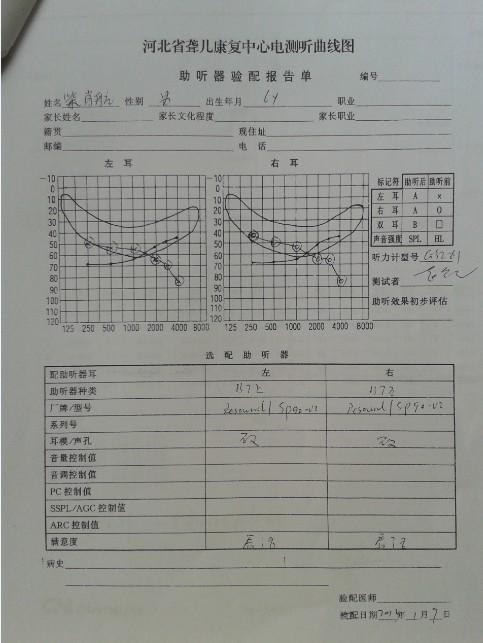 河北省聋儿康复中心电测听曲线图
助听器验配报告单 编号
姓名 性别 男 出生年月 6y 职业
家长姓名 家长文化程度 家长职业
籍贯 现住址
邮编 电话
左耳 右耳
-10 -10
0 0
10 10
20 20
30 30
40 40
50 50
60 60
70 70
80 80
90 90
100 100
110 110
120 120
125 250 500 1000 2000 4000 8000 125 250 500 1000 2000 4000 8000
标记符 助听后 助听前
左耳 A ×
右耳 A O
双耳 B □
声音强度 SPL HL
听力计型号
测试者
助听效果初步评估
选配助听器
配助听器耳 左 右
助听器种类
厂牌/型号 Resound/ Resound/
系列号
耳模/声孔
音量控制值
音调控制值
PC控制值
SSPL/AGC控制值
ARC控制值
满意度
病史
验配医师
验配日期 年1月7日